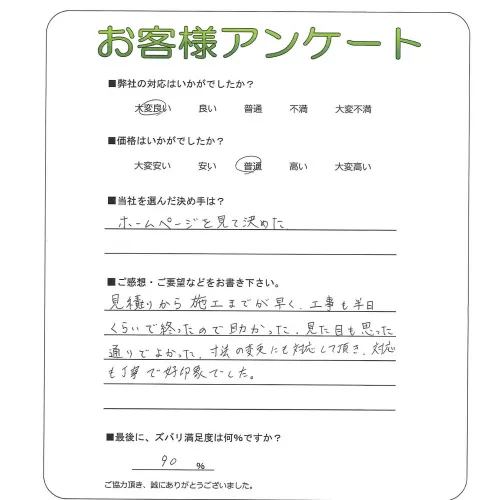 お客様アンケート
■弊社の対応はいかがでしたか？
大変良い　良い　普通　不満　大変不満
■価格はいかがでしたか？
大変安い　安い　普通　高い　大変高い
■当社を選んだ決め手は？
ホームページを見て決めた
■ご感想・ご要望などをお書き下さい。
見積りから施工までが早く、工事も半日
くらいで終ったので助かった。見た目も思った
通りでよかった。寸法の変更にも対応して頂き、対応
も丁寧で好印象でした。
■最後に、ズバリ満足度は何％ですか？
90 ％
ご協力頂き、誠にありがとうございました。